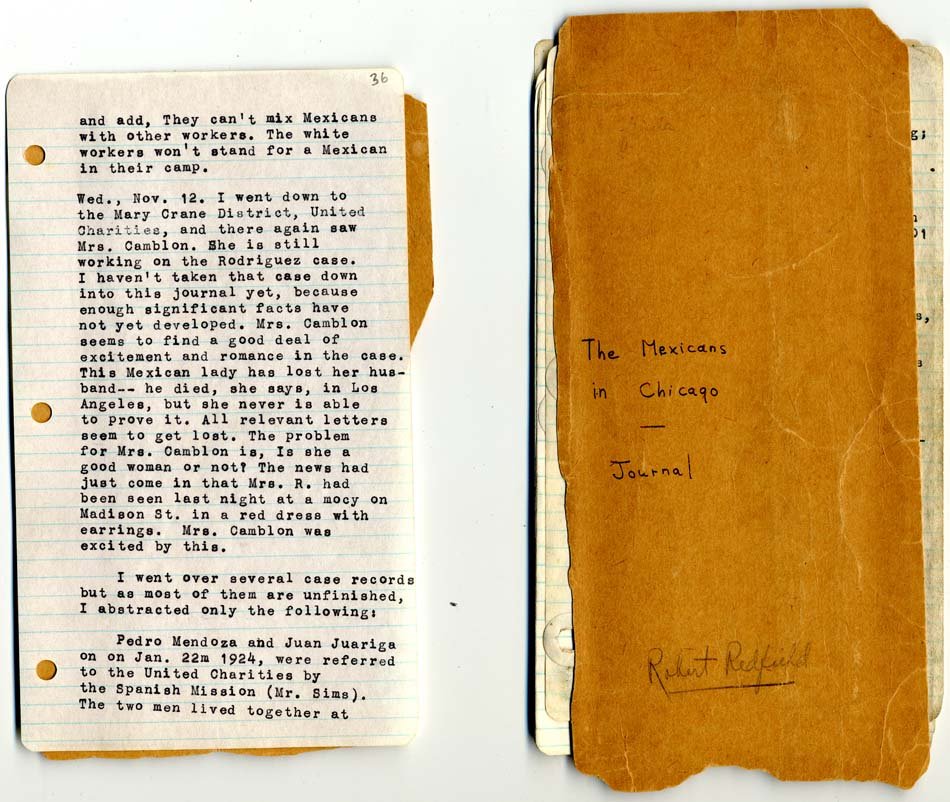 36
and add, They can't mix Mexicans
with other workers. The white
workers won't stand for a Mexican
in their camp.
Wed., Nov. 12. I went down to
the Mary Crane District, United
Charities, and there again saw
Mrs. Camblon. She is still
working on the Rodriguez case.
I haven't taken that case down
into this journal yet, because
enough significant facts have
not yet developed. Mrs. Camblon
seems to find a good deal of
excitement and romance in the case.
This Mexican lady has lost her hus-
band-- he died, she says, in Los
Angeles, but she never is able
to prove it. All relevant letters
seem to get lost. The problem
for Mrs. Camblon is, Is she a
good woman or not? The news had
just come in that Mrs. R. had
been seen last night at a mocy on
Madison St. in a red dress with
earrings. Mrs. Camblon was
excited by this.
I went over several case records
but as most of them are unfinished,
I abstracted only the following:
Pedro Mendoza and Juan Juariga
on on Jan. 22m 1924, were referred
to the United Charities by
the Spanish Mission (Mr. Sims).
The two men lived together at
The Mexicans
in Chicago
—
Journal
Robert Redfield